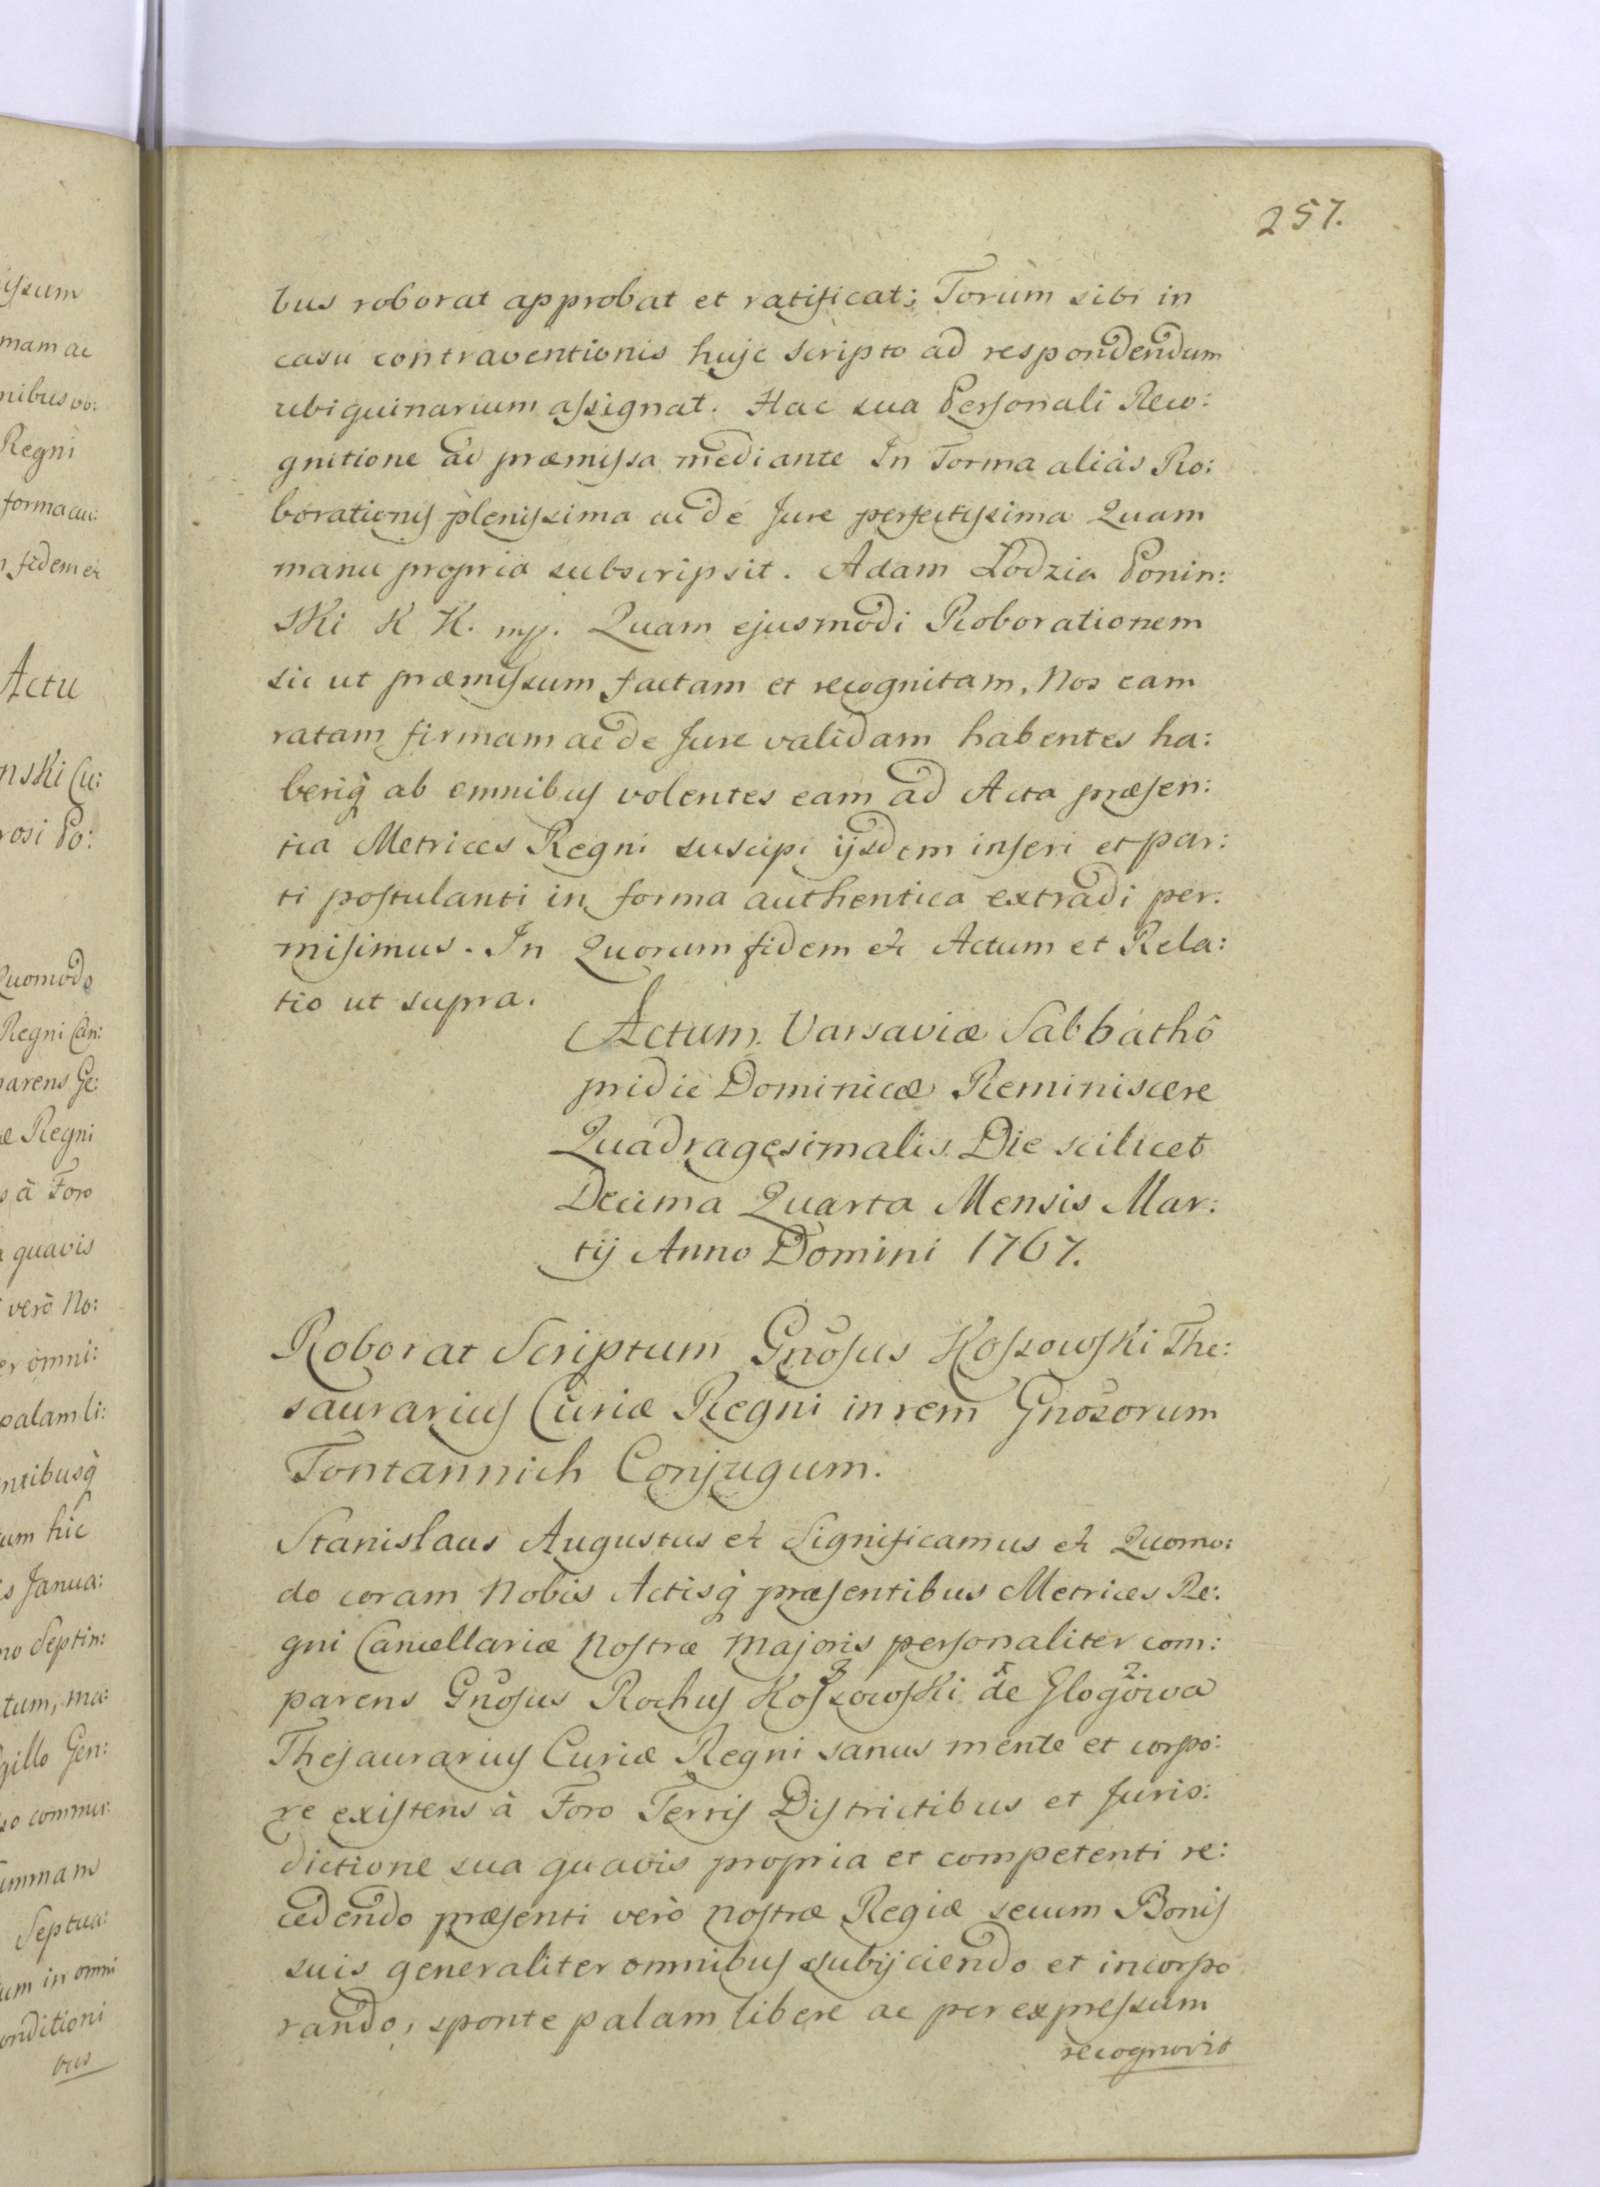 257.
bus roborat approbat et ratificat; Forùm sibi in
casu contraventionis hujc scripto ad respondendum
ubiquinarium assignat. Hac sua Personali Reco:
gnitione ad præmissa mediante In Forma aliàs Ro:
borationis plenissima ac de Jure perfectissima Quam
manu propria subscripsit. Adam Lodzia Ponin:
ski K K. mp. Quam ejusmodi Roborationem
sic ut præmissum factam et recognitam, Nos eam
ratam firmam ac de Jure validam habentes ha:
beriq̀ ab omnibus volentes eam ad Acta præsen:
tia Metrices Regni suscipi ijsdem inseri et par:
ti postulanti in forma authentica extradi per:
misimus. In Quorum fidem etc Actum et Rela:
tio ut supra.
Actum Varsaviæ Sabbathô
pridie Dominicæ Reminiscere
Quadragesimalis Die scilicet
Decima Quarta Mensis Mar:
tij Anno Domini 1767.
Roborat Scriptum Gnosus Kossowski The:
saurarius Curiæ Regni in rem Gnosorum
Fontannich Conjugum.
Stanislaus Augustus etc Significamus etc Quomo:
do coram Nobis Actisq̀ præsentibus Metrices Re:
gni Cancellariæ Nostræ Majoris personaliter com:
parens Gnosus Rochus Kossowski de Glogowa
Thesaurarius Curiæ Regni sanus mente et corpo:
re existens à Foro Terris Districtibus et Juris:
dictione sua quavis propria et competenti re:
cedendo præsenti verò Nostræ Regiæ secum Bonis
suis generaliter omnibus subijciendo et incorpo
rando, sponte palam libere ac per expressum
recognovit